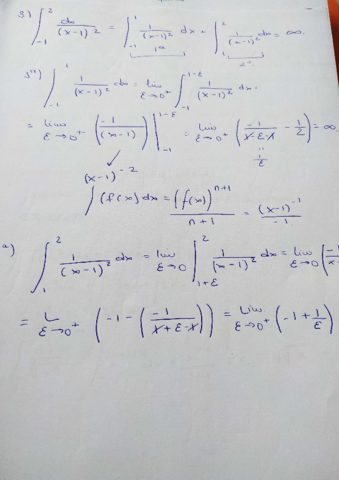 3) ∫₋₁² dx/(x-1)² = ∫₋₁¹ 1/(x-1)² dx + ∫₁² 1/(x-1)² dx = ∞.
1ª 2ª
∫₋₁¹ 1/(x-1)² dx = lim ε→0⁺ ∫₋₁^(1-ε) 1/(x-1)² dx =
= lim ε→0⁺ (-1/(x-1)) |₋₁^(1-ε) = lim ε→0⁺ (-1/(1-ε-1) - 1/2) = ∞.
1/ε
(x-1)⁻²
∫(f(x) dx = (f(x))ⁿ⁺¹/(n+1) = (x-1)⁻¹/-1
a) ∫₁² 1/(x-1)² dx = lim ε→0 ∫₁₊ε² 1/(x-1)² dx = lim ε→0 (-1/x-
= L ε→0⁺ (-1 - (-1/(1+ε-1))) = lim ε→0⁺ (-1 + 1/ε)